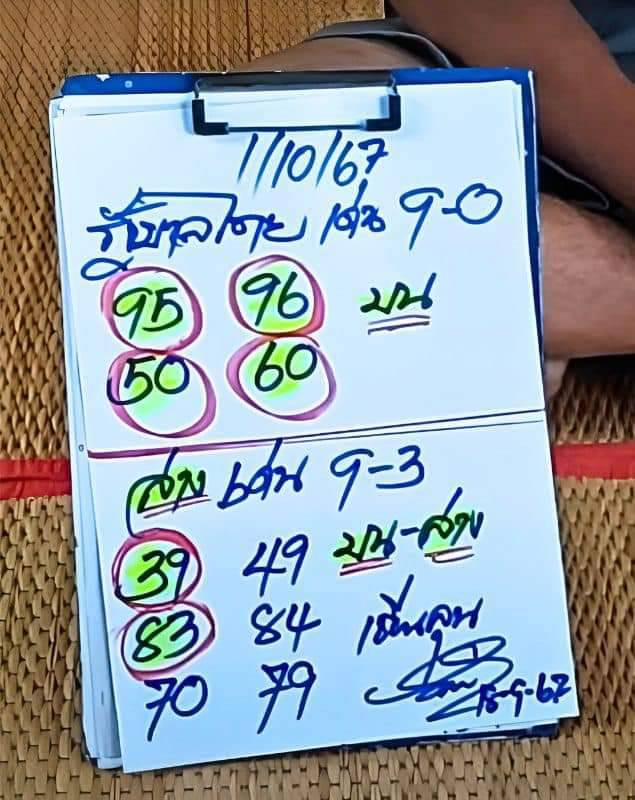 1/10/67
รัฐบาลไทย เด่น 9-0
95 96 บน
50 60
ล่าง เด่น 9-3
39 49 บน-ล่าง
83 84
70 79
15-9-67